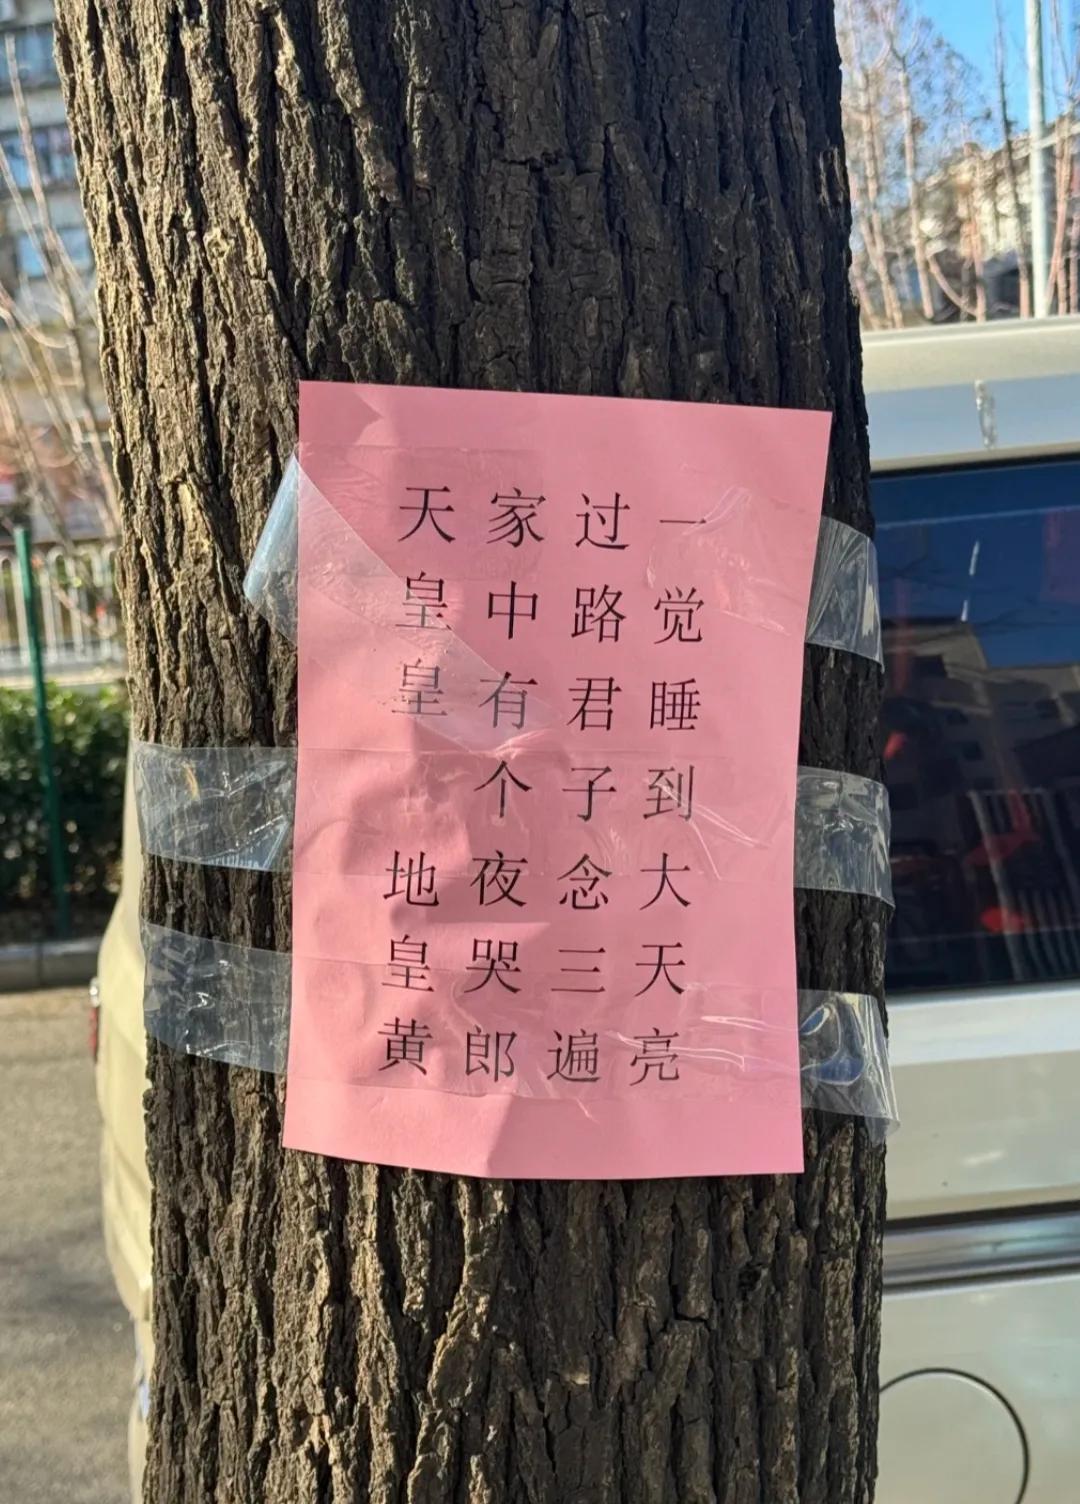 天皇皇 地皇黄
家中有个夜哭郎
过路君子念三遍
一觉睡到大天亮